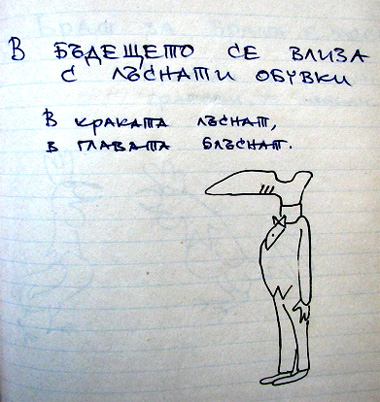 В БЪДЕЩЕТО СЕ ВЛИЗА
С ЛЪСНАТИ ОБУВКИ
В КРАКАТА ЛЪСНАТ,
В ГЛАВАТА БЛЪСНАТ.